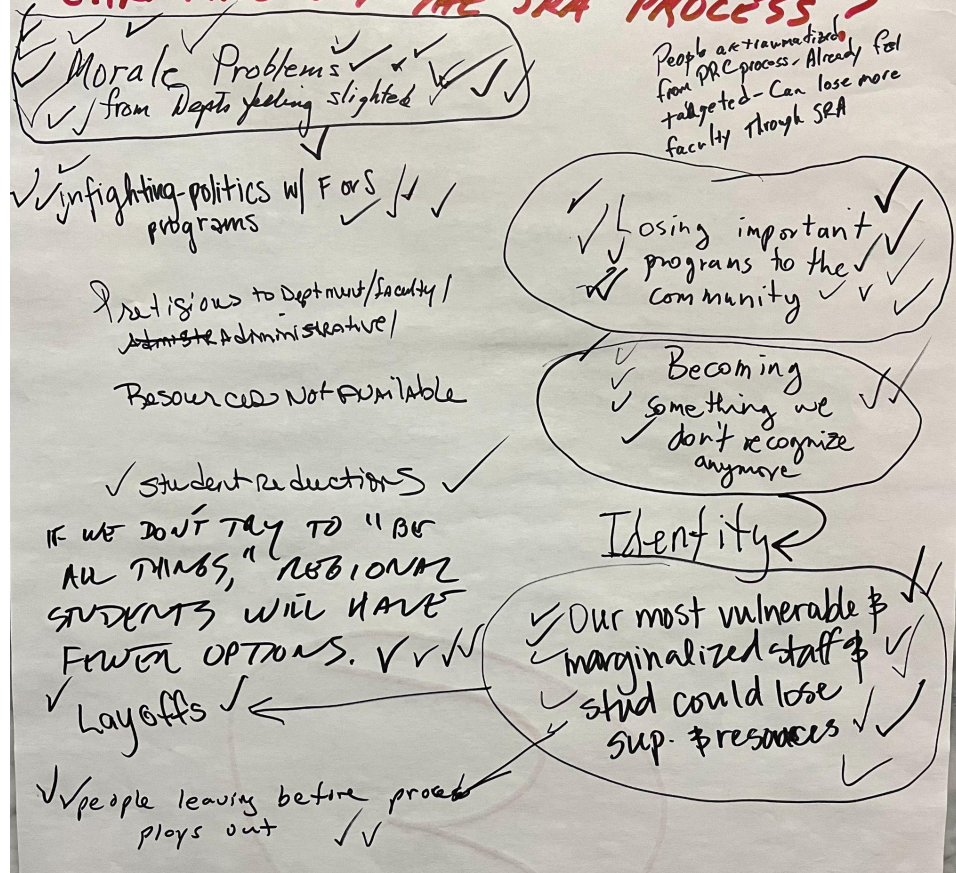 THE SRA PROCESS?
Morale Problems
from Depts feeling slighted
People are traumatized
from PRC process. Already feel
taregeted - Can lose more
faculty Through SRA
infighting-politics w/ F or S
programs
Losing important
programs to the
community
Pretigious to Deptment/faculty/
Administrative/
Resources Not AvAilable
Becoming
something we
don't recognize
anymore
student Reductions
IF WE DON'T TRY TO "BE
ALL THINGS," REGIONAL
STUDENTS WILL HAVE
FEWER OPTIONS.
Identity
Our most vulnerable &
marginalized staff &
stud could lose
sup. & resources
Layoffs
people leaving before process
plays out